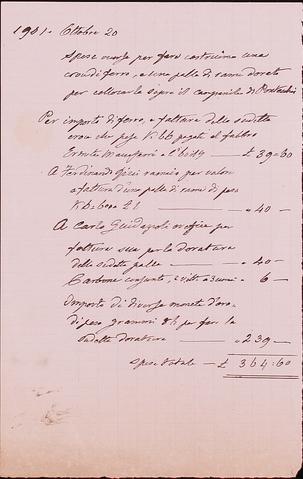 1901. Ottobre 20
Spese occorse per fare costruire una
croce di ferro, e una palla di rame dorata
per collocarla sopra il campanile di
Per importo di ferro, e fattura della sudetta
croce che pesa K. 66 pagate al fabbro
Ernesto £ 39=60
A Ferdinando ramaio per valore
e fattura d'una palla di rame di peso
" 40 —
A Carlo Guidazzoli orefice per
fattura sua per la doratura
della sudetta palla — " 40 —
Carbone consunto, " 6 —
Importo di diverse monete d'oro
di peso grammi per fare la
sudetta doratura — " 239 —
Spesa totale — £ 364=60